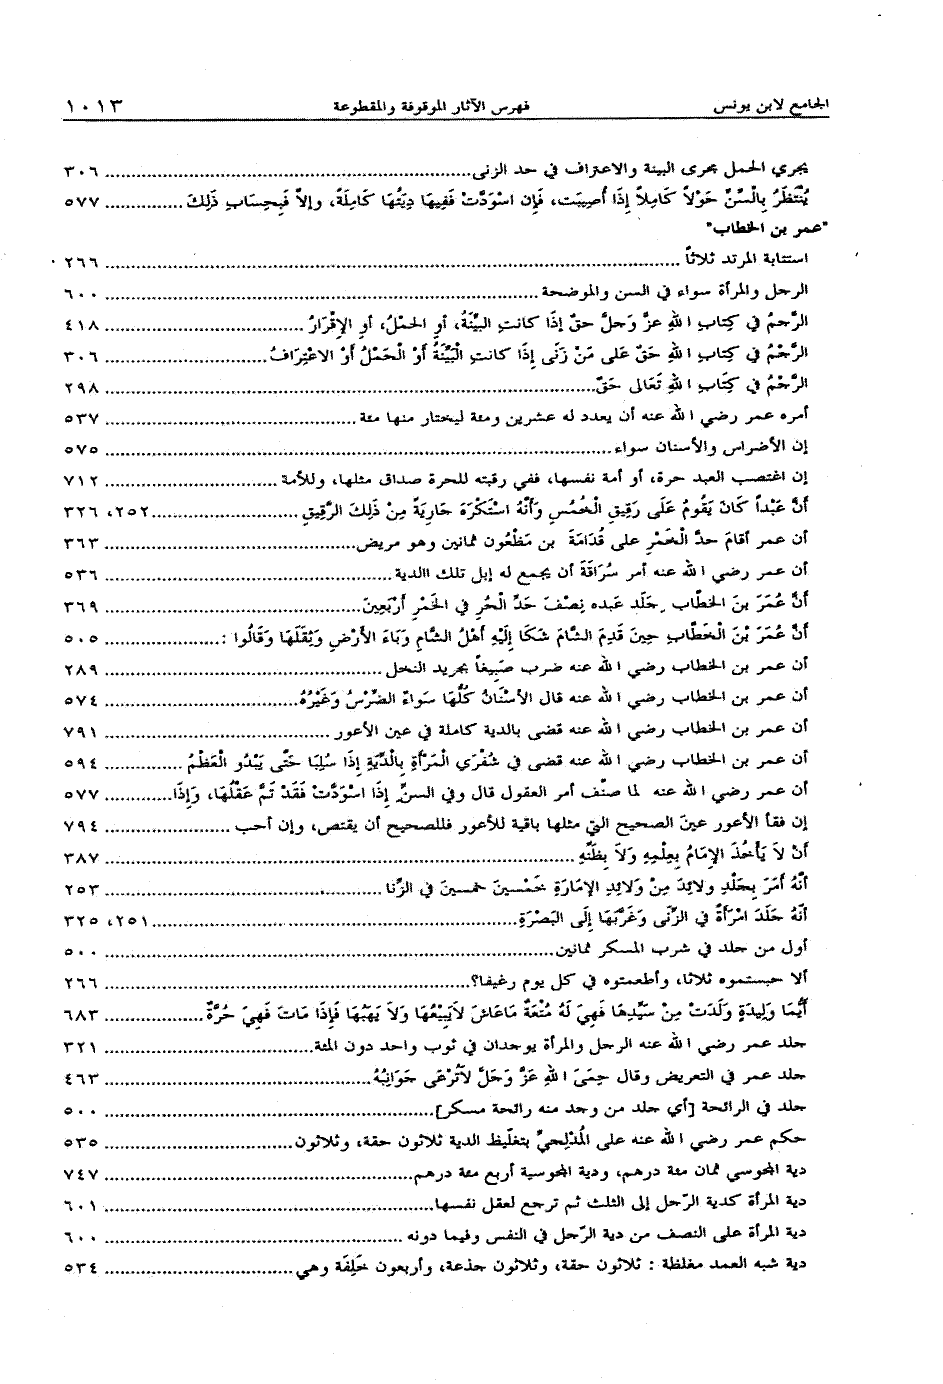 الجامع لابن يونس فهرس الآثار الموقوفة والمقطوعة ١٠١٣
يجري الحمل مجرى البينة والاعتراف في حد الزنى ٣٠٦
يُنْتَظَرُ بِالسِّنِّ حَوْلاً كَامِلاً إِذَا أُصِيبَت، فَإِن اسْوَدَّتْ فَفِيهَا دِيَتُهَا كَامِلَةً، وإلاَّ فَبِحِسَابِ ذَلِكَ ٥٧٧
"عمر بن الخطاب"
استتابة المرتد ثلاثاً ٢٦٦
الرجل والمرأة سواء في السن والموضحة ٦٠٠
الرَّجمُ في كِتابِ اللهِ عزَّ وَجلَّ حقٌ إذَا كانتِ البيِّنَةُ، أوِ الحمْلُ، أوِ الإِقْرَارُ ٤١٨
الرَّجْمُ في كِتَابِ اللهِ حَقٌ عَلى مَنْ زَنَى إذَا كانتِ الْبَيِّنَةُ أَوْ الْحَمْلُ أَوْ الاعْتِرَافُ ٣٠٦
الرَّجْمُ في كِتَابِ اللهِ تَعَالى حَقٌ ٢٩٨
أمره عمر رضي الله عنه أن يعدد له عشرين ومئة ليختار منها مئة ٥٣٧
إن الأضراس والأسنان سواء ٥٧٥
إن اغتصب العبد حرة، أو أمة نفسها، ففي رقبته للحرة صداق مثلها، وللأمة ٧١٢
أَنَّ عَبْداً كَانَ يَقُومُ عَلَى رَقِيقِ الْخُمُسِ وَأَنَّهُ اسْتَكْرَهَ جَارِيَةً مِنْ ذَلِكَ الرَّقِيقِ ٢٥٢، ٣٢٦
أن عمر أقامَ حدَّ الْخَمْرِ على قُدَامَةَ بن مَظْعُون ثمانين وهو مريض ٣٦٣
أن عمر رضي الله عنه أمر سُرَاقَةَ أن يجمع له إبل تلك االدية ٥٣٦
أَنَّ عُمَرَ بنَ الخطَّابِ جَلَد عَبده نِصْفَ حَدِّ الْحُرِ في الخَمْرِ أَرْبَعِينَ ٣٦٩
أَنَّ عُمَرَ بْنَ الْخَطَّابِ حِينَ قَدِمَ الشَّامَ شَكَا إِلَيْهِ أَهْلُ الشَّامِ وَبَاءَ الأَرْضِ وَثِقَلَهَا وَقَالُوا : ٥٠٥
أن عمر بن الخطاب رضي الله عنه ضرب صَبِيغاً بجريد النخل ٢٨٩
أن عمر بن الخطاب رضي الله عنه قال الأسْنَانُ كُلُّهَا سَواءٌ الضِّرْسُ وَغَيْرُهُ ٥٧٤
أن عمر بن الخطاب رضي الله عنه قضى بالدية كاملة في عين الأعور ٧٩١
أن عمر بن الخطاب رضي الله عنه قضى في شُفْرَي الْمَرْأَةِ بِالدِّيَةِ إِذَا سُلِبَا حَتَّى يَبْدُو الْعَظْمُ ٥٩٤
أن عمر رضي الله عنه لما صنَّف أمر العقول قال وفي السنِّ إِذَا اسْوَدَّتْ فَقَدْ تَمَّ عَقْلُهَا، وَإِذَا ٥٧٧
إن فقأ الأعور عينَ الصحيح التي مثلها باقية للأعور فللصحيح أن يقتص، وإن أحب ٧٩٤
أَنْ لاَ يَأْخُذَ الإِمَامُ بِعِلْمِهِ وَلاَ بِظَنِّهِ ٣٨٧
أنَّهُ أَمَرَ بِجَلْدِ ولائِدَ مِنْ وَلائِدِ الإِمَارَةِ خَمْسِينَ خمسينَ في الزِّنا ٢٥٣
أنَّهُ جَلَدَ امْرَأَةً في الزِّنَى وَغَرَّبَهَا إِلَى البَصْرَةِ ٢٥١، ٣٢٥
أول من جلد في شرب المسكر ثمانين ٥٠٠
ألا حبستموه ثلاثا، وأطعمتوه في كل يوم رغيفا؟ ٢٦٦
أَيُّمَا وَلِيدَةٍ وَلَدَتْ مِنْ سَيِّدِهَا فَهِيَ لَهُ مُتْعَةٌ مَاعَاشَ لاَيَبِيْعُهَا وَلاَ يَهَبُهَا فَإِذَا مَاتَ فَهِيَ حُرَّةٌ ٦٨٣
جلد عمر رضي الله عنه الرجل والمرأة يوجدان في ثوب واحد دون المئة ٣٢١
جلد عمر في التعريض وقال حِمَى اللهِ عَزَّ وَجَلَّ لاَتُرْعَى جَوَانِبُهُ ٤٦٣
جلد في الرائحة [أي جلد من وجد منه رائحة مسكر] ٥٠٠
حكم عمر رضي الله عنه على المُدْلِجيِّ بتغليظ الدية ثلاثون حقة، وثلاثون ٥٣٥
دية المجوسي ثمان مئة درهم، ودية المجوسية أربع مئة درهم ٧٤٧
دية المرأة كدية الرّجل إلى الثلث ثم ترجع لعقل نفسها ٦٠١
دية المرأة على النصف من دية الرّجل في النفس وفيما دونه ٦٠٠
دية شبه العمد مغلظة : ثلاثون حقة، وثلاثون جذعة، وأربعون خَلِفَة وهي ٥٣٤